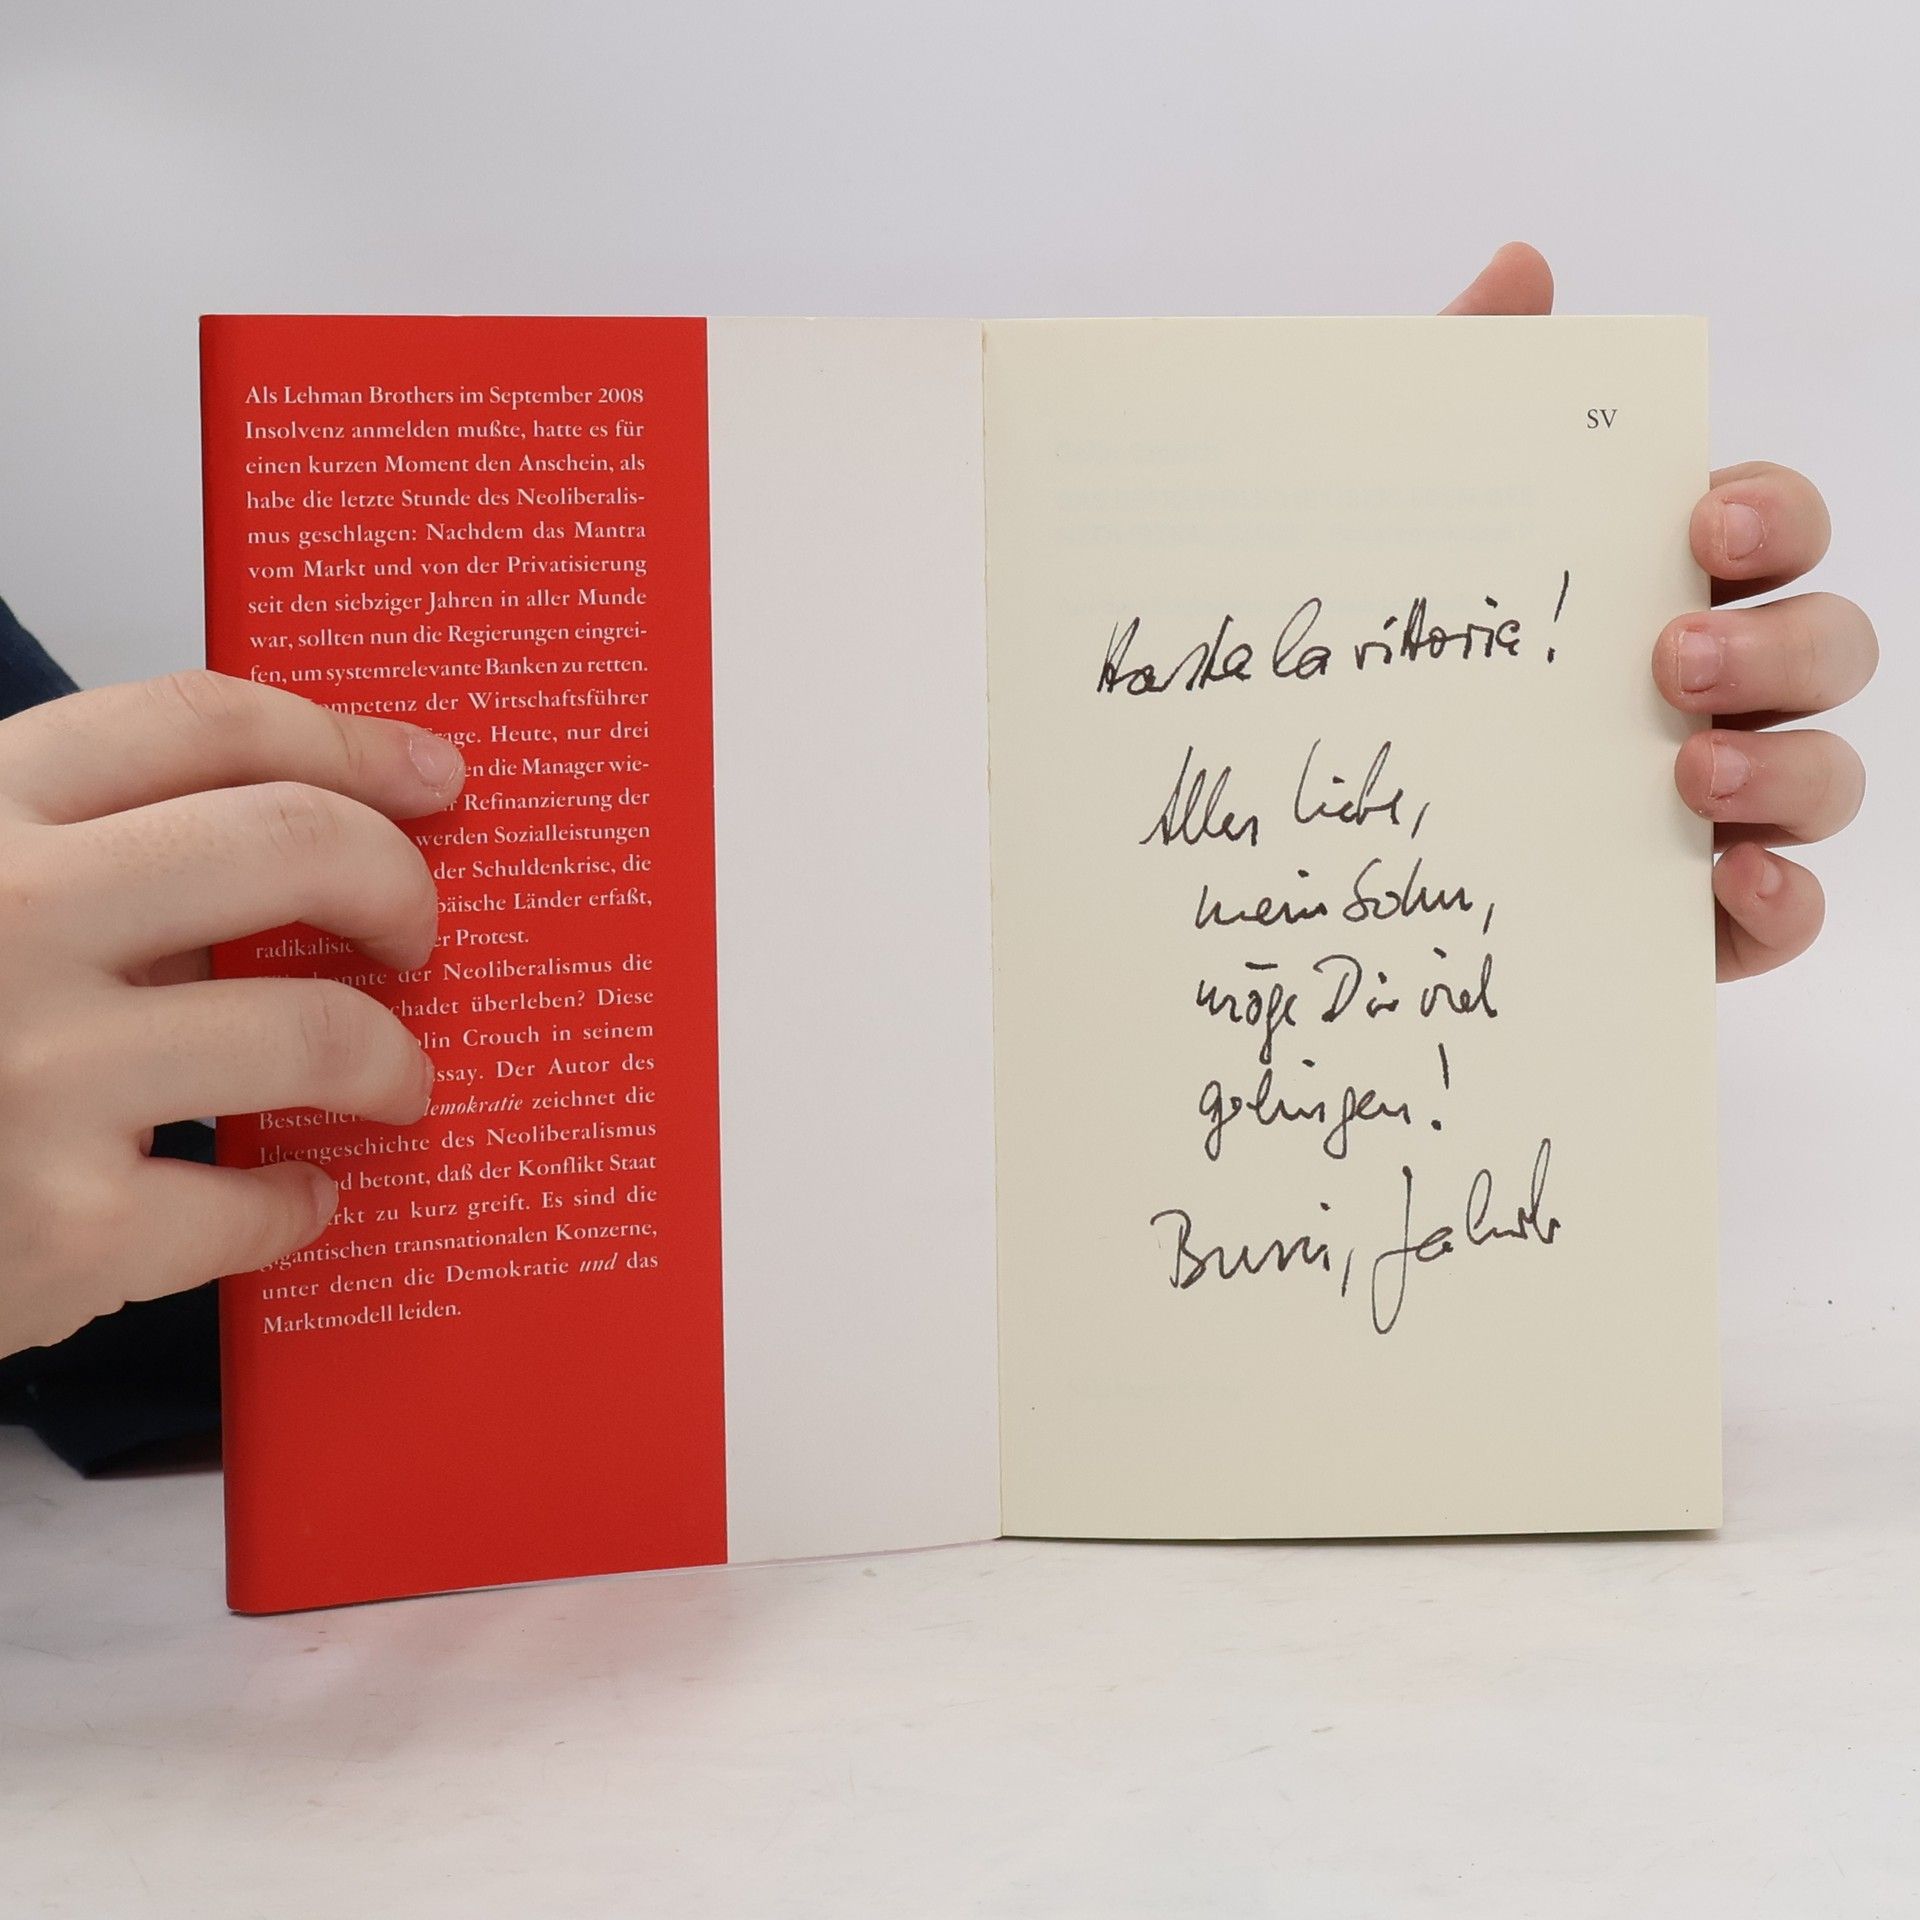 Als Lehman Brothers im September 2008
Insolvenz anmelden mußte, hatte es für
einen kurzen Moment den Anschein, als
habe die letzte Stunde des Neoliberalis-
mus geschlagen: Nachdem das Mantra
vom Markt und von der Privatisierung
seit den siebziger Jahren in aller Munde
war, sollten nun die Regierungen eingrei-
fen, um systemrelevante Banken zu retten.
mpetenz der Wirtschaftsführer
rage. Heute, nur drei
en die Manager wie-
Refinanzierung der
werden Sozialleistungen
der Schuldenkrise, die
päische Länder erfaßt,
radikalisie er Protest.
nnte der Neoliberalismus die
chadet überleben? Diese
olin Crouch in seinem
ssay. Der Autor des
Bestseller demokratie zeichnet die
Ideengeschichte des Neoliberalismus
nd betont, daß der Konflikt Staat
rkt zu kurz greift. Es sind die
gigantischen transnationalen Konzerne,
unter denen die Demokratie und das
Marktmodell leiden.
SV
Hasta la vittoria!
Alles Liebe,
mein Sohn,
möge Dir viel
gelingen!
Bussi,